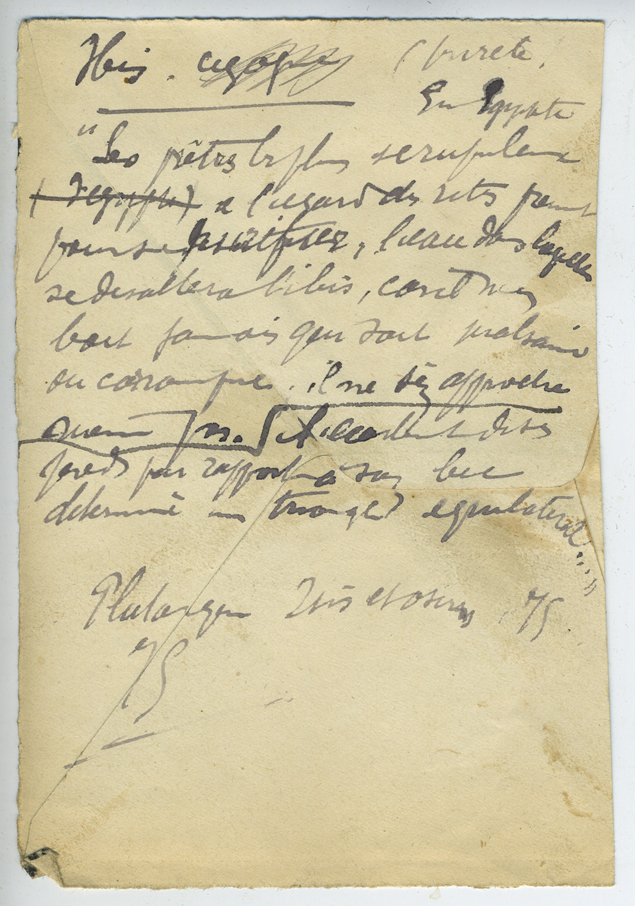 Ibis. (Pureté.
En Egypte
"Les prêtres les plus scrupuleux
(d'Egypte) à l'égard des rites prennent
pour se purifier, l'eau dans laquelle
se désaltère l'ibis, car il n'en
boit jamais qui soit malsaine
ou corrompue. il ne s'en approche
L'écartement de ses
pieds par rapport à son bec
détermine un triangle équilatéral..."
Plutarque Isis et Osiris, 75
75